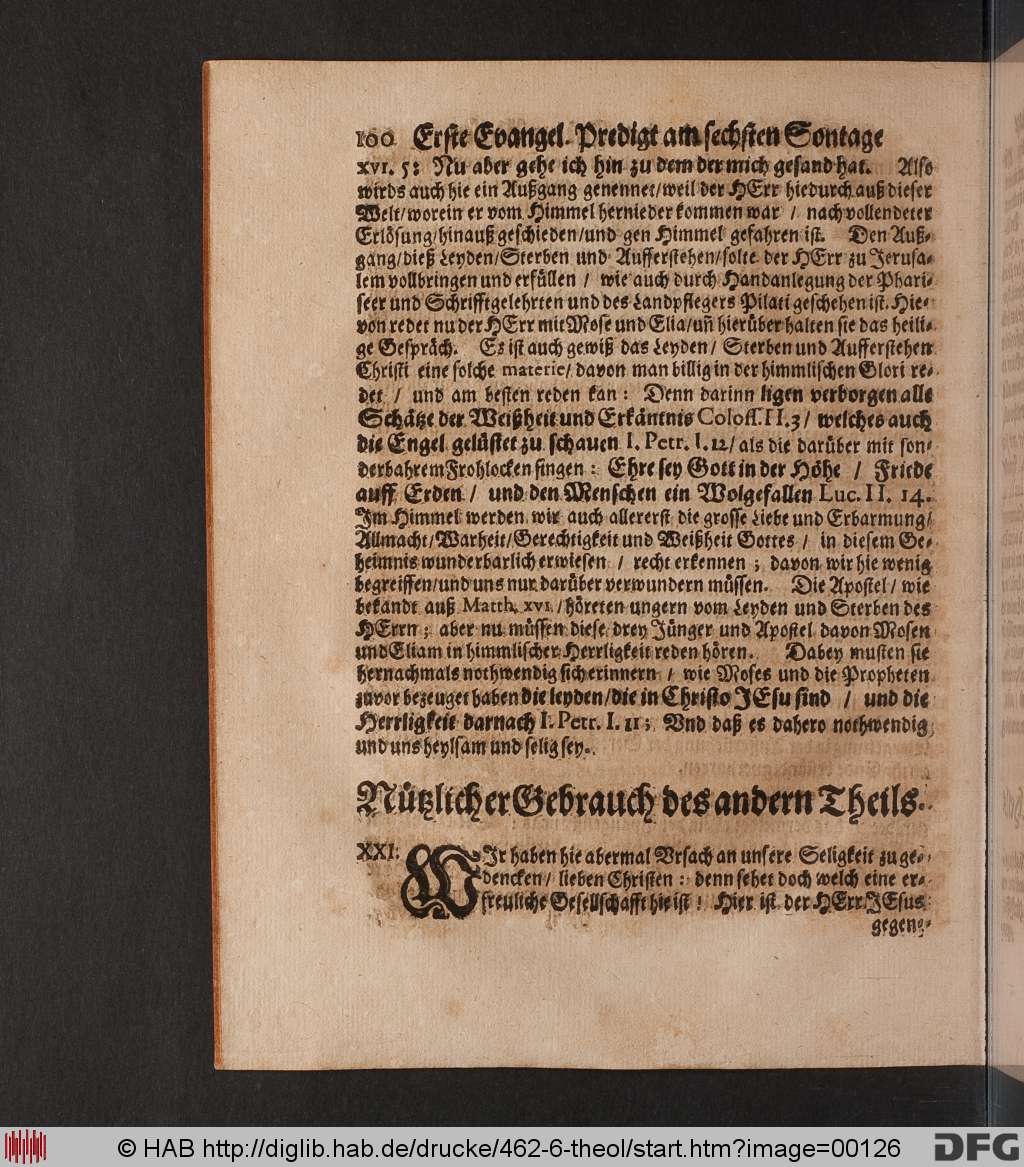 100 Erste Evangel. Predigt am sechsten Sontage
XVI. 5: Nu aber gehe ich hin zu dem der mich gesand hat. Also
wirds auch hie ein Außgang genennet/weil der HErr hiedurch auß dieser
Welt/worein er vom Himmel hernieder kommen war / nach vollendeter
Erlösung/hinauß geschieden/und gen Himmel gefahren ist. Den Auß-
gang/dieß Leyden/Sterben und Aufferstehen/solte der HErr zu Jerusa-
lem vollbringen und erfüllen / wie auch durch Handanlegung der Phari-
seer und Schrifftgelehrten und des Landpflegers Pilati geschehen ist. Hie-
von redet nu der HErr mit Mose und Elia/uñ hierüber halten sie das heili-
ge Gespräch. Es ist auch gewiß das Leyden/ Sterben und Aufferstehen
Christi eine solche materie/ davon man billig in der himmlischen Glori re-
det / und am besten reden kan: Denn darinn ligen verborgen alle
Schätze der Weißheit und Erkäntnis Coloss. II. 3/ welches auch
die Engel gelüstet zu schauen I. Petr. I. 12/ als die darüber mit son-
derbahrem Frohlocken singen: Ehre sey Gott in der Höhe / Friede
auff Erden/ und den Menschen ein Wolgefallen Luc. II. 14.
Im Himmel werden wir auch allererst die grosse Liebe und Erbarmung/
Allmacht/Warheit/Gerechtigkeit und Weißheit Gottes / in diesem Ge-
heimnis wunderbarlich erwiesen / recht erkennen; davon wir hie wenig
begreiffen/und uns nur darüber verwundern müssen. Die Apostel/ wie
bekandt auß Matth. XVI./höreten ungern vom Leyden und Sterben des
HErrn; aber nu müssen diese drey Jünger und Apostel davon Mosen
und Eliam in himmlischer Herrligkeit reden hören. Dabey musten sie
hernachmals nothwendig sich erinnern / wie Moses und die Propheten
zuvor bezeuget haben die leyden/die in Christo JEsu sind / und die
Herrligkeit darnach I. Petr. I. 11; Vnd daß es dahero nothwendig
und uns heylsam und selig sey.
Nützlicher Gebrauch des andern Theils.
XXI. WIr haben hie abermal Vrsach an unsere Seligkeit zu ge-
dencken/ lieben Christen: denn sehet doch welch eine er-
freuliche Gesellschafft hie ist! Hier ist der HErr JEsus
gegen-
© HAB http://diglib.hab.de/drucke/462-6-theol/start.htm?image=00126
DFG